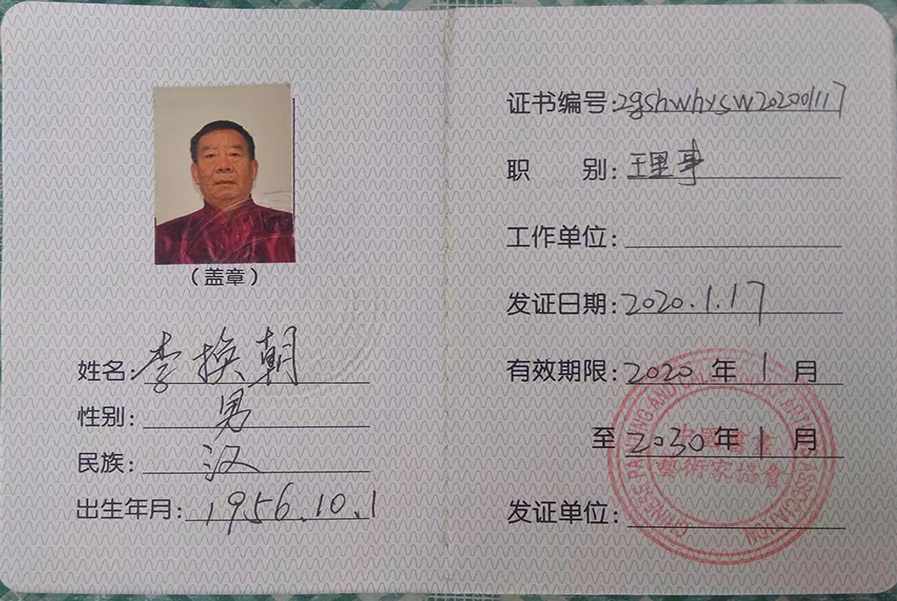 (盖章)
姓名:李换朝
性别:男
民族:汉
出生年月:1956.10.1
证书编号:zgshwhysw20200117
职 别:理事
工作单位:
发证日期:2020.1.17
有效期限:2020年1月
至2030年1月
发证单位:
CHINESE PAINTING AND ASSOCIATION
中國書畫
藝術家協會